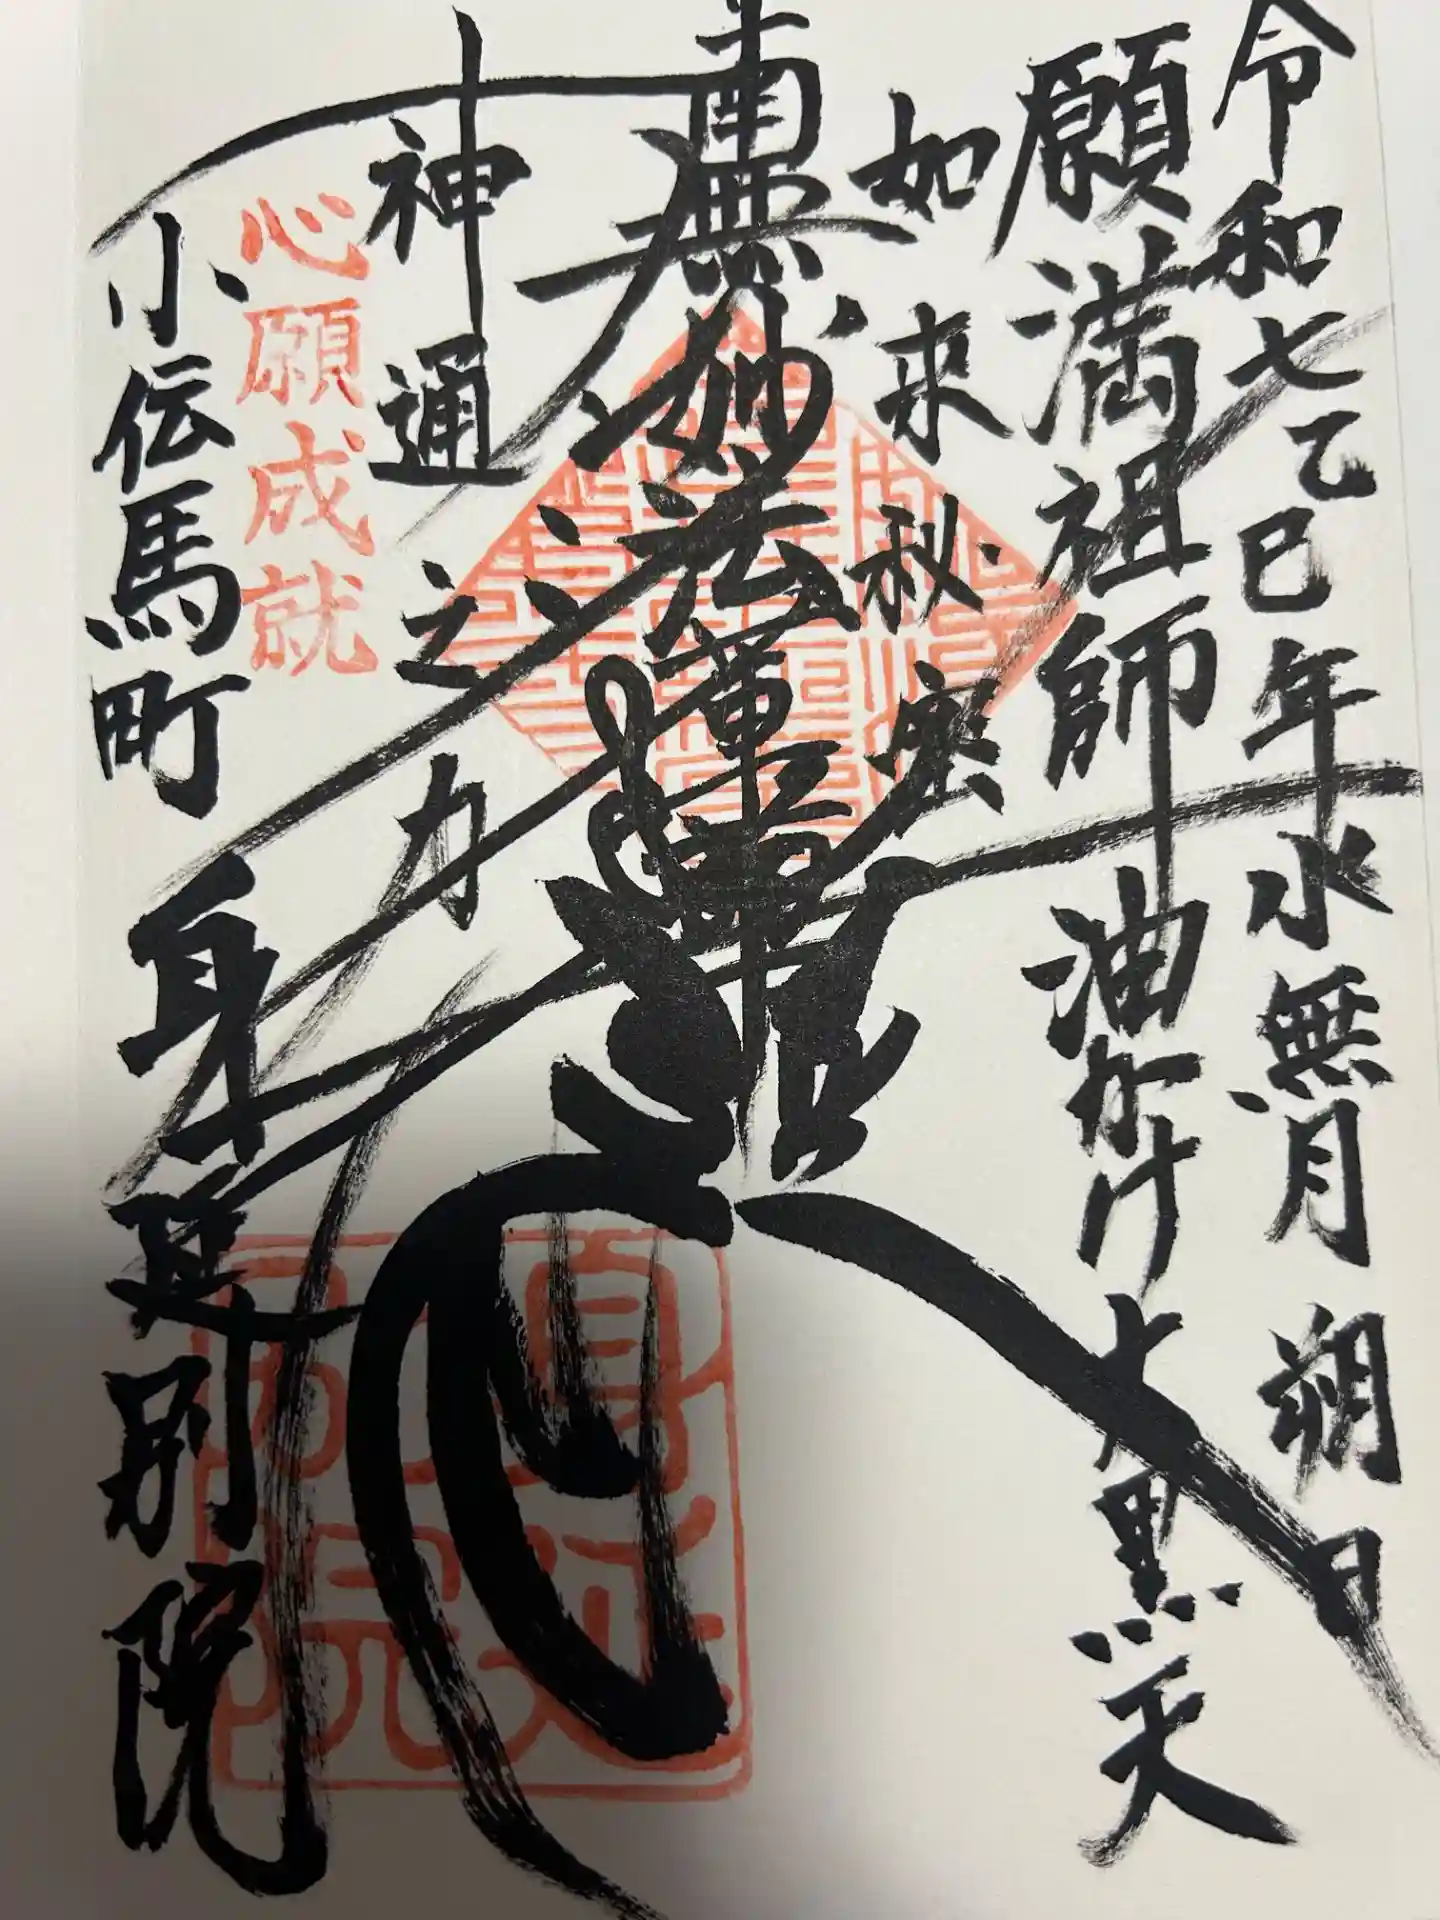 令和七乙巳年水無月朔日
願満祖師 油かけ大黒天
如来秘密
南無妙法蓮華経
神通之力
心願成就
小伝馬町 身延別院